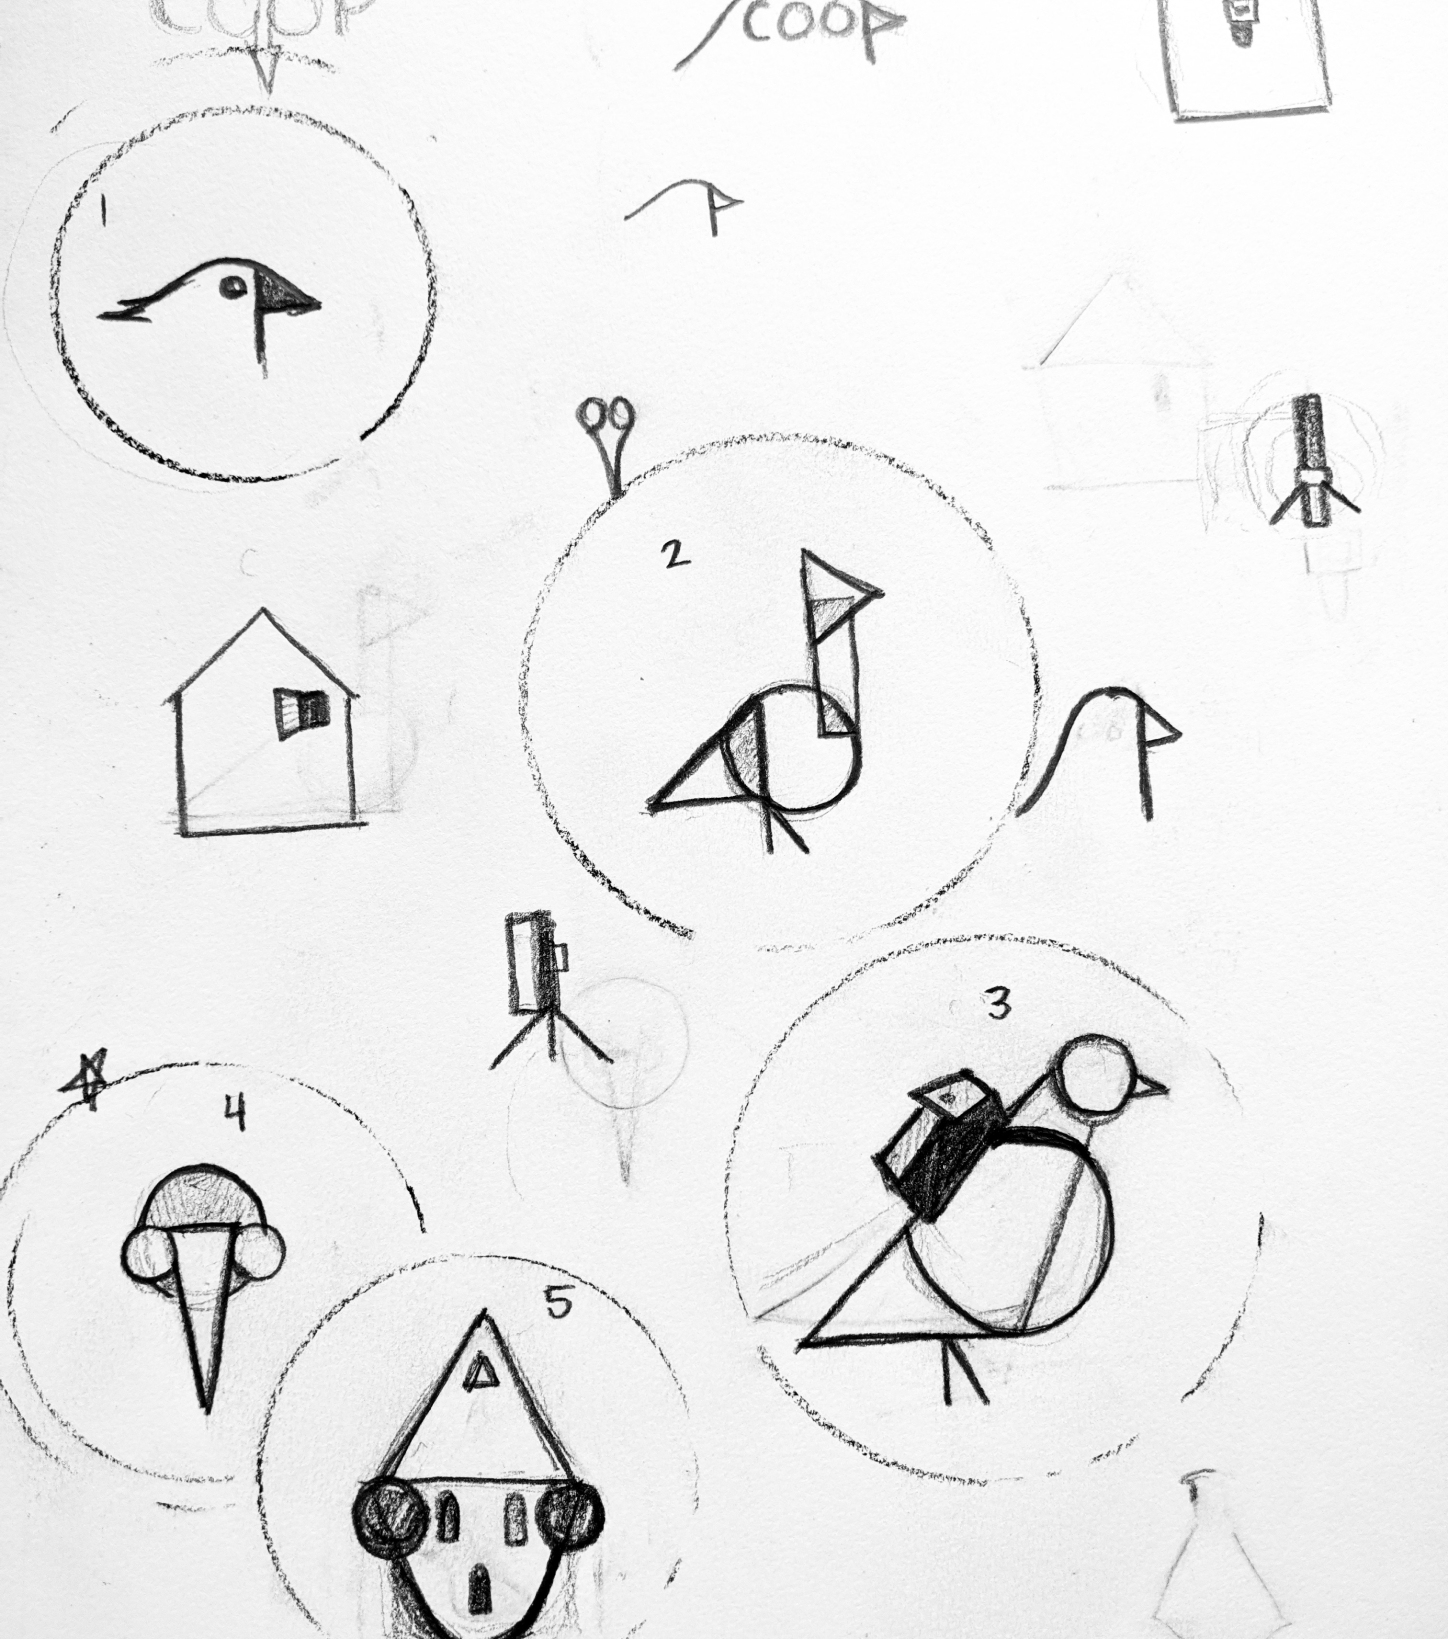 COOP
COOP
1
2
3
4
5